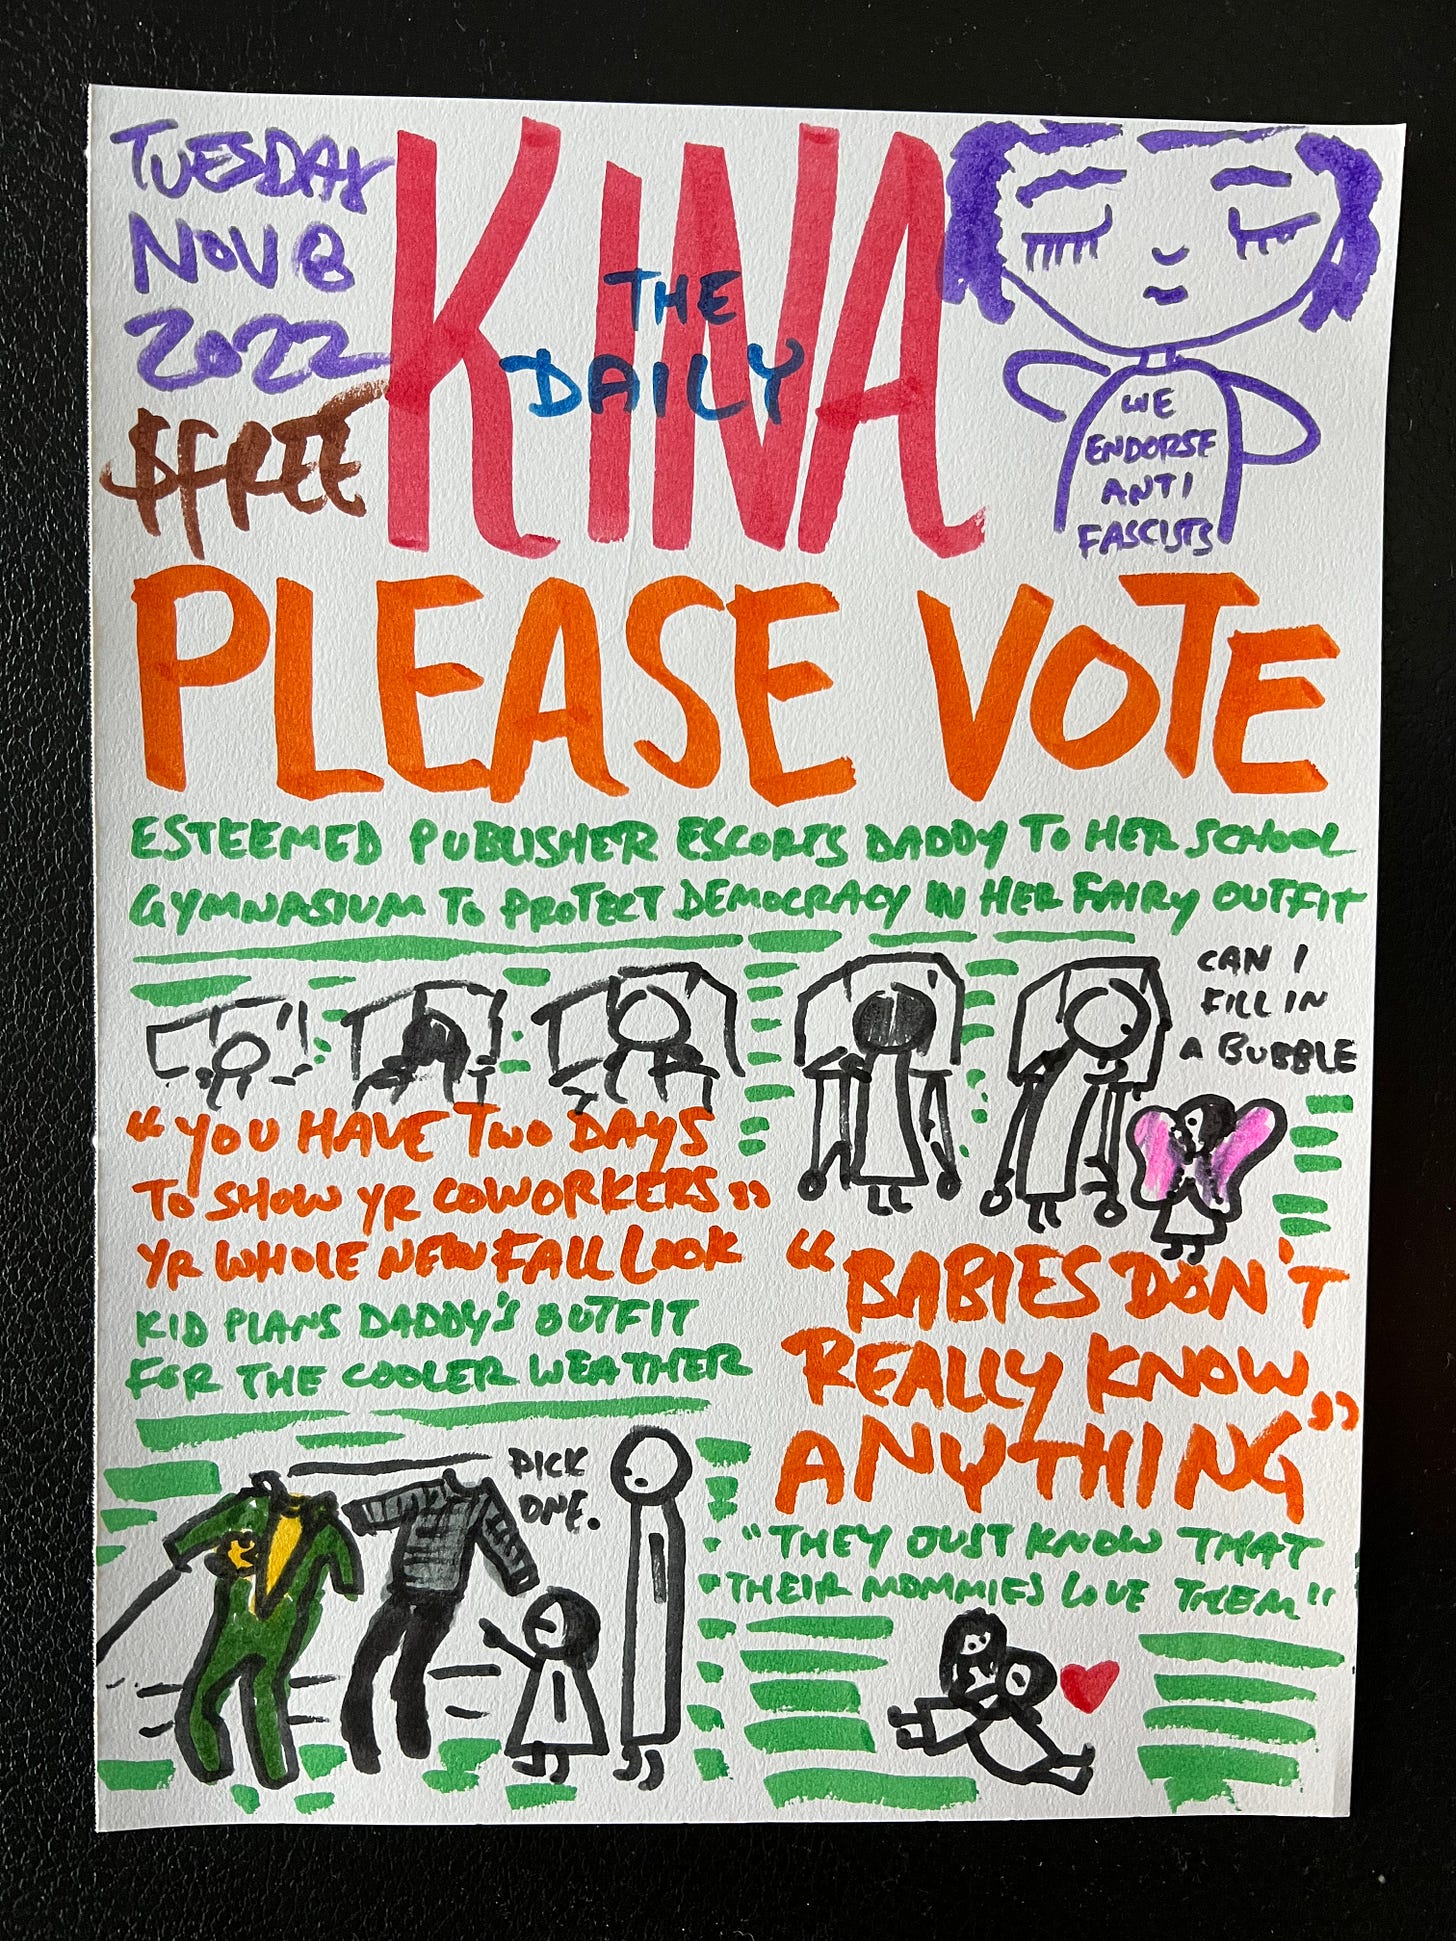 TUESDAY
NOV 8
2022
$FREE
THE
DAILY
KINA
WE
ENDORSE
ANTI
FASCISTS
PLEASE VOTE
ESTEEMED PUBLISHER ESCORTS DADDY TO HER SCHOOL
GYMNASIUM TO PROTECT DEMOCRACY IN HER FAIRY OUTFIT
CAN I
FILL IN
A BUBBLE
"YOU HAVE TWO DAYS
TO SHOW YR COWORKERS"
YR WHOLE NEW FALL LOOK
KID PLANS DADDY'S OUTFIT
FOR THE COOLER WEATHER
PICK
ONE.
"BABIES DON'T
REALLY KNOW
ANYTHING"
"THEY JUST KNOW THAT
THEIR MOMMIES LOVE THEM"